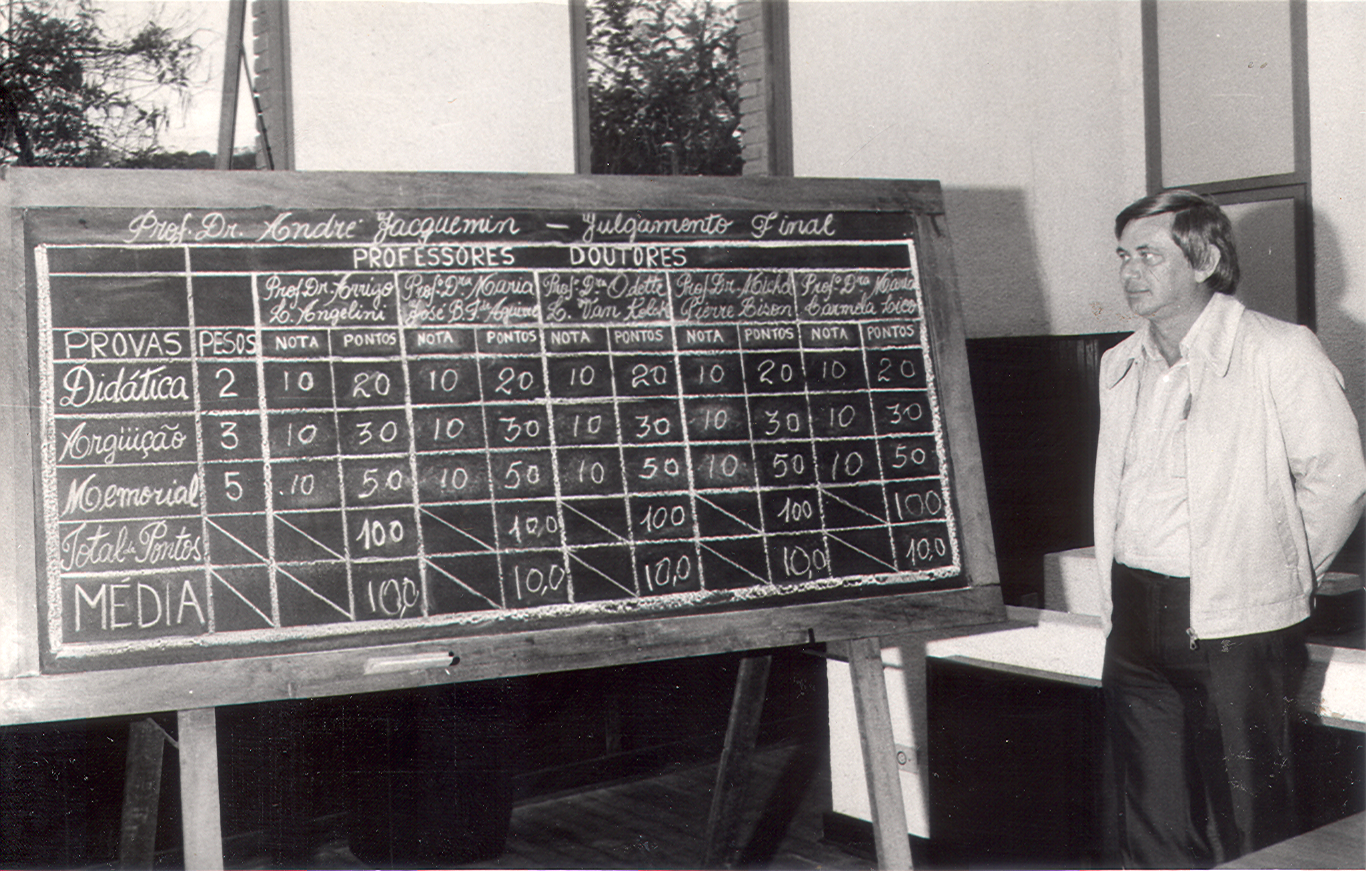 Prof. Dr. André Jacquemin — Julgamento Final
PROFESSORES DOUTORES
Prof. Dr. Arrigo Profª Drª Maria Profª Dra Odette Prof. Dr. Michel Profª Dra Maria
L. Angelini José B. F. de Aquino L. Van Kolck Pierre Bison Carmela Lico
PROVAS PESOS NOTA PONTOS NOTA PONTOS NOTA PONTOS NOTA PONTOS NOTA PONTOS
Didática 2 10 20 10 20 10 20 10 20 10 20
Argüição 3 10 30 10 30 10 30 10 30 10 30
Memorial 5 10 50 10 50 10 50 10 50 10 50
Total de Pontos 100 100 100 100 100
MÉDIA 10,0 10,0 10,0 10,0 10,0